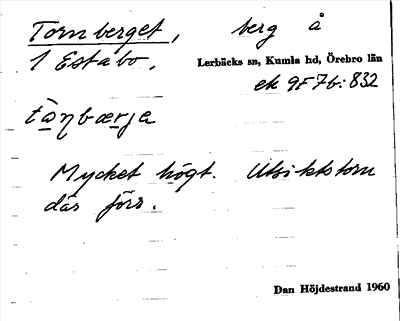 Tornberget, berg å
1 Estabo.
Lerbäcks sn, Kumla hd, Örebro län
ek 9F7b:832
tằŋbærja
Mycket högt. Utsiktstorn
där förr.
Dan Höjdestrand 1960